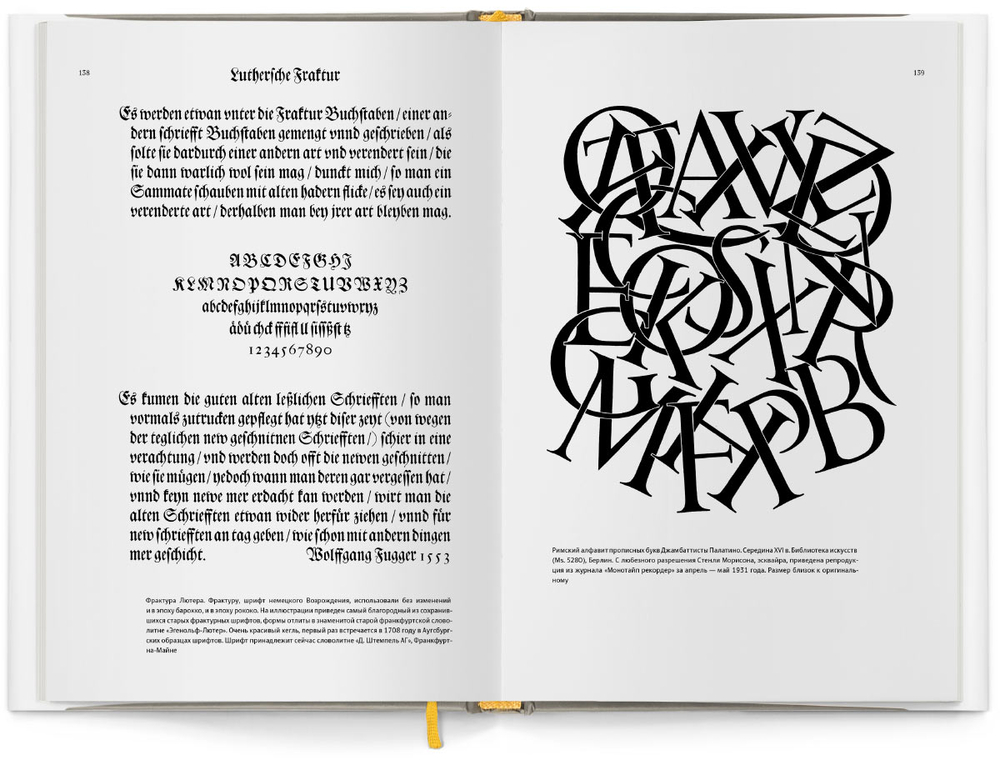 138
Lutherſche Fraktur
Es werden etwan vnter die Fraktur Buchſtaben / einer an-
dern ſchriefft Buchſtaben gemengt vnnd geſchrieben / als
ſolte ſie dardurch einer andern art vnd verendert ſein / die
ſie dann warlich wol ſein mag / dunckt mich / ſo man ein
Sammate ſchauben mit alten hadern flicke / es ſey auch ein
verenderte art / derhalben man bey jrer art bleyben mag.
ABCDEFGHI
KLMNOPQRSTUVWXYZ
abcdefghijklmnopqrſstuvwxyz
äöü chck fffifl ll ſiſſßſt tz
1234567890
Es kumen die guten alten leßlichen Schriefften / ſo man
vormals zutrucken gepflegt hat ytzt diſer zeyt (von wegen
der teglichen new geſchnitnen Schriefften /) ſchier in eine
verachtung / vnd werden doch offt die newen geſchnitten /
wie ſie mügen / yedoch wann man deren gar vergeſſen hat /
vnnd keyn newe mer erdacht kan werden / wirt man die
alten Schriefften etwan wider herfür ziehen / vnnd für
new ſchriefften an tag geben / wie ſchon mit andern dingen
mer geſchicht. Wolffgang Fugger 1553
Фрактура Лютера. Фрактуру, шрифт немецкого Возрождения, использовали без изменений
и в эпоху барокко, и в эпоху рококо. На иллюстрации приведен самый благородный из сохранив-
шихся старых фрактурных шрифтов, формы отлиты в знаменитой старой франкфуртской слово-
литне «Эгенольф-Лютер». Очень красивый кегль, первый раз встречается в 1708 году в Аугсбург-
ских образцах шрифтов. Шрифт принадлежит сейчас словолитне «Д. Штемпель АГ», Франкфурт-
на-Майне
139
Римский алфавит прописных букв Джамбаттисты Палатино. Середина XVI в. Библиотека искусств
(Ms. 5280), Берлин. С любезного разрешения Стенли Морисона, эсквайра, приведена репродук-
ция из журнала «Монотайп рекордер» за апрель — май 1931 года. Размер близок к оригиналь-
ному